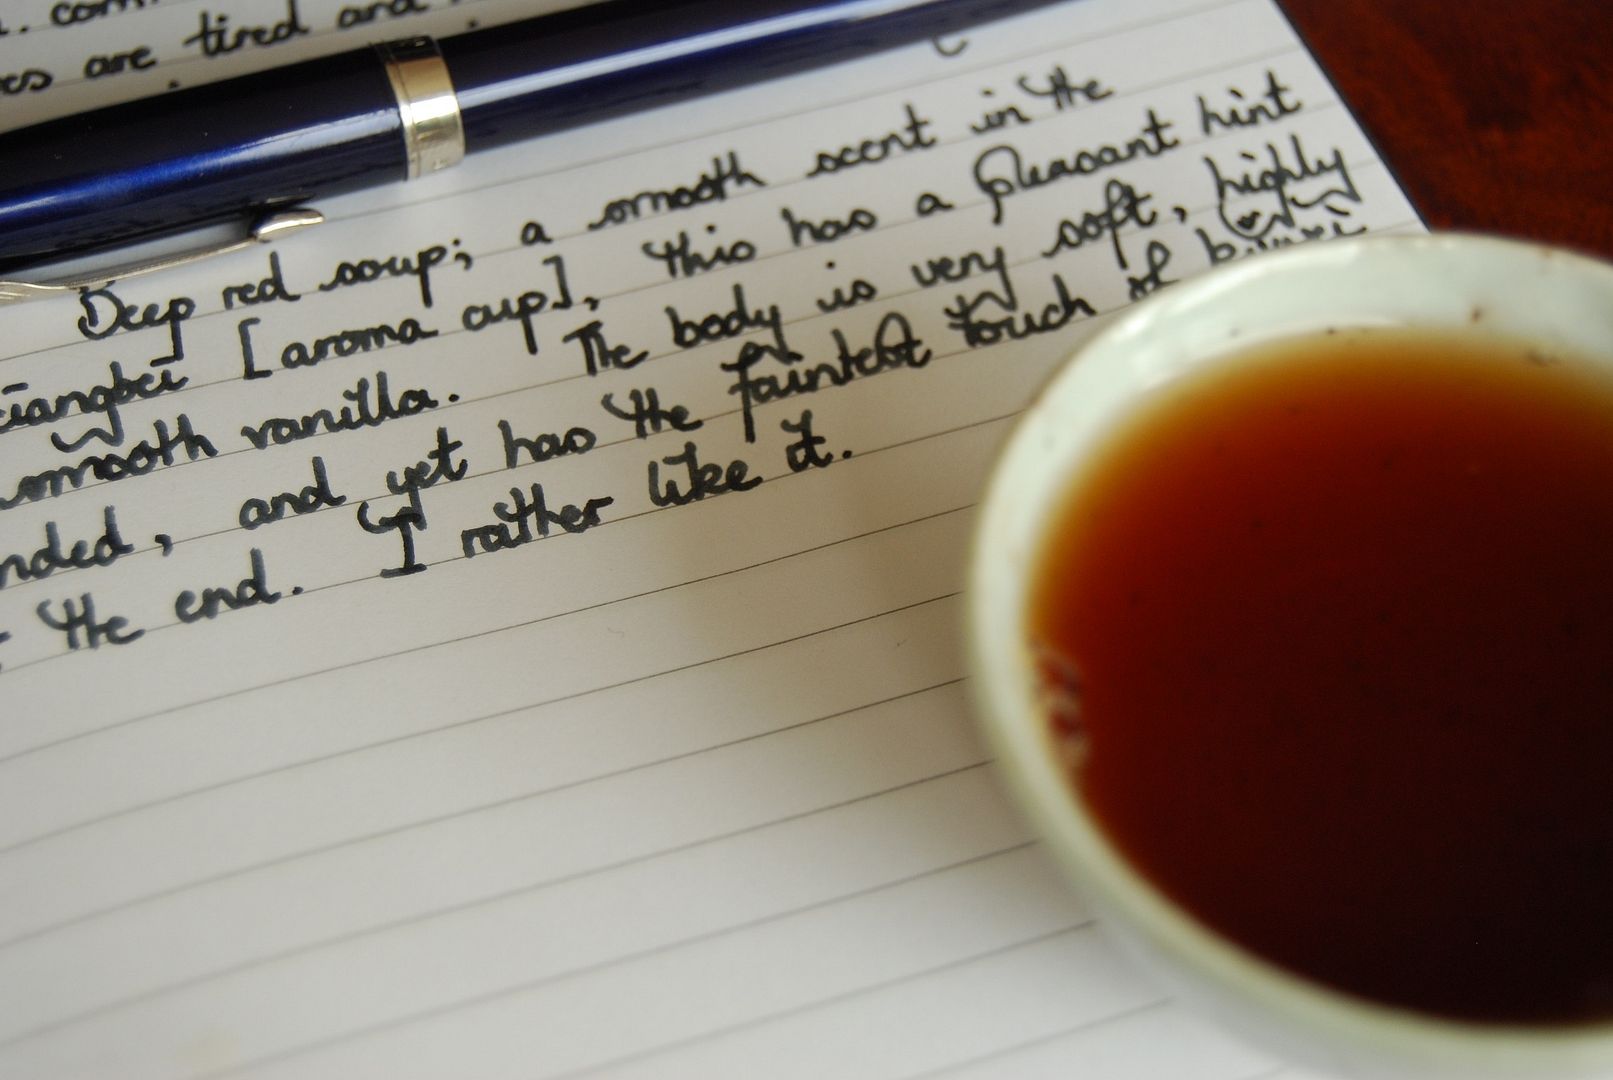 . com
are tired and
Deep red soup; a smooth scent in the
xiangbei [aroma cup], this has a pleasant hint
smooth vanilla. The body is very soft, highly
nded, and yet has the faintest touch of
the end. I rather like it.